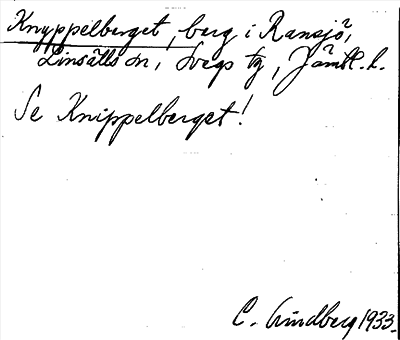 Knyppelberget, berg i Ransjö,
Linsälls sn, Svegs tg, Jämtl. l.
Se Knippelberget!
C. Lindberg 1933.